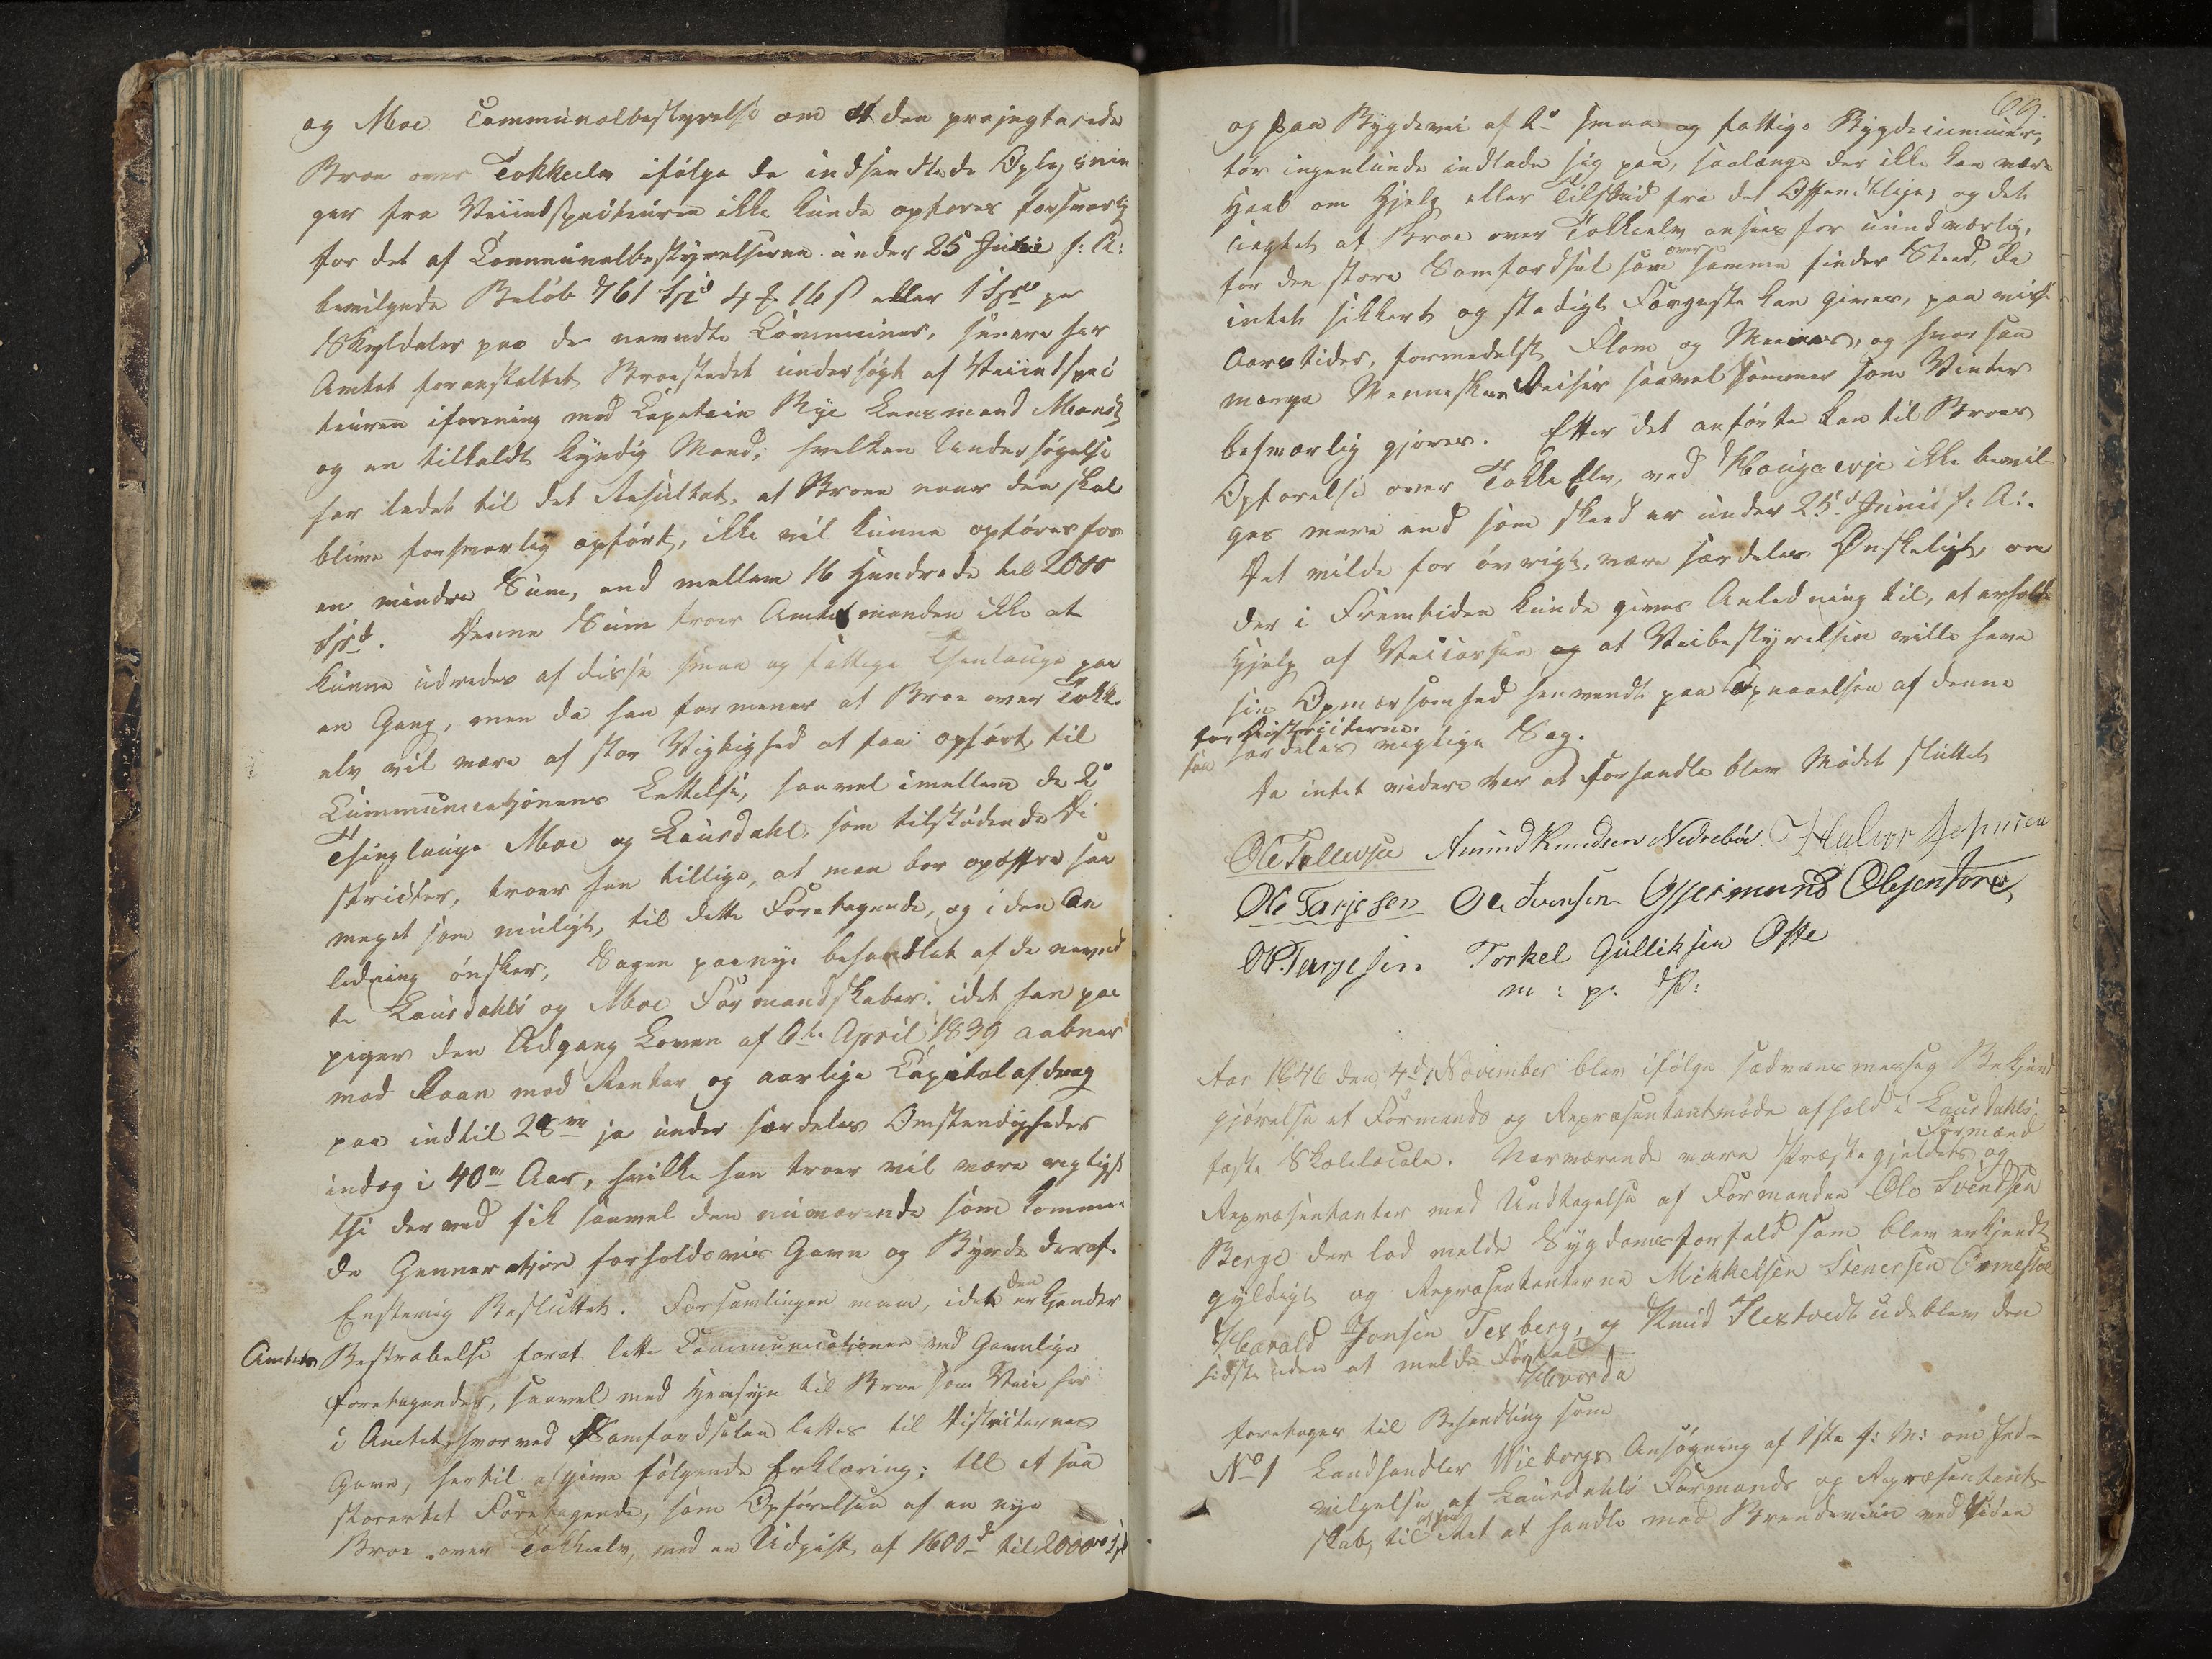 og Moe Communalbestyrelse om at den projegterede
Broe over Tokkeelv ifølge de indsendtede Oplysnin
ger fra Veiindspecteuren ikke kunde opføres forsvarlig
for det af Communalbestyrelserne under 25 Junii f: A:
bevilgede Beløb 761 Spd 4 ƒ 16 ß eller 1 Spd pr
Skyldaler paa de nevndte Communer, senere har
Amtet foranstaltet Broestedet undersøgt af Veiindspec
teuren iforening med Capitain Rye Lensmand
og en tilkaldt kyndig Mand; hvilken Undersøgelse
har ledet til det Resultat, at Broen naar den skal
blive forsvarlig opført, ikke vil kunne opføres for
en mindre Sum, end mellem 16 Hundrede til 2000
Spd. Denne Sum troer Amtmanden ikke at
kunne udredes af disse smaa og fattige Thinlauge paa
en Gang, men da han formener at Broe over Tokke
elv vil være af stor Vigtighed at faa opført, til
Communicationens Lettelse, saavel imellem de 2de
Thinglauge Moe og Laurdahl, som tilstødende Di
stricter, troer han tillige, at man bør opoffre saa
meget som muligt, til dette Foretagende, og i den An
ledning ønsker, Sagen paanye behandlet af de nevnd
te Laurdahls og Moe Formandskaber; idet han paa
peger den Adgang Loven af 6te April 1839 aabner
mod Laan mod Renter og aarlige Capitalafdrag
paa indtil 28 ja under særdeles Omstendigheder
indog i 40 Aar, hvilke han troer vil være rigtigst
thi derved fik saavel den nuværende som kommen
de Genneration forholdsvis Gavn og Byrde deraf.
Enstemig Besluttet. Forsamlingen maa, idet den erkjender
Amtets Bestræbelse forat lette Communicationen ved Gavnlige
foretagender, saavel med Hensyn til Broe som Veie her
i Amtet, hvorved Samfærdselen lettes til Districternes
Gavn, hertil afgive følgende Erklæring: at et saa
storartet Foretagende, som Opførelsen af en nye
Broe over Tokkeelv, med en Udgift af 1600 til 2000 Spd
69.
og paa Bygdevei af 2de smaa og fattige Bygdecommuner,
tør ingenlunde indlade sig paa, saalænge der ikke kan være
Haab om Hjelp eller Tilskud fra det Offentlige; og det
uagtet at Broe over Tokkeelv ansees for uundværlig,
for den store Samfærdsel som over samme finder Sted, da
intet sikkert og stadigt Færgested kan gives, paa visse
Aarstider, formedelst Flom og, og hvor saa
mange Menneskers Reiser saavel Sommer som Vinter
besværlig gjøres. Efter det anførte kan til Broes
Opførelse over Tokke Elv, ved ikke bevil-
ges mere end som skeed er under 25de Junii f: A:.
Det vilde for øvrigt, være særdeles Ønskeligt, om
der i Fremtiden kunde gives Anledning til, at erholde
Hjelp af Veicassen og at Veibestyrelsen ville have
sin Opmærsomhed henvendt paa Opnaaelsen af denne
for Districterne
saa særdeles vigtige Sag.
Da intet videre var at forhandle blev Mødet sluttet
Ole Tallevsen Amund Knudsen Nedrebøe. Halvor Johnsen
Ole Tarjesen Ole Svensen Gjermund Olsen
O. Tarjesen. Torkel Gulliksen Ofte
m : p. P:
Aar 1846 den 4de November blev ifølge sædvansmessig Bekjend
gjørelse et Formands og Repræsentantmøde afhold i Laurdahls
faste Skolelocale. Nærværende vare Præstegjeldets Formænd og
Repræsentanter med Undtagelse af Formanden Ole Svendsen
Berge der lod melde Sygdomsforfald som blev erkjendt
gyldigt og Repræsentanterne Mikkelsen Stenersen
Harald Jonsen Texberg, og Knud Flextvedt udeblev den
sidste uden at melde Forfald
Hvorda
foretoges til Behandling som
No 1 Landhandler Wieborgs Ansøgning af 1ste f: M: om Ind-
vilgelse af Laurdahls Formands og Repræsentant-
skab, til Ret at handle med Brendeviin ved Siden